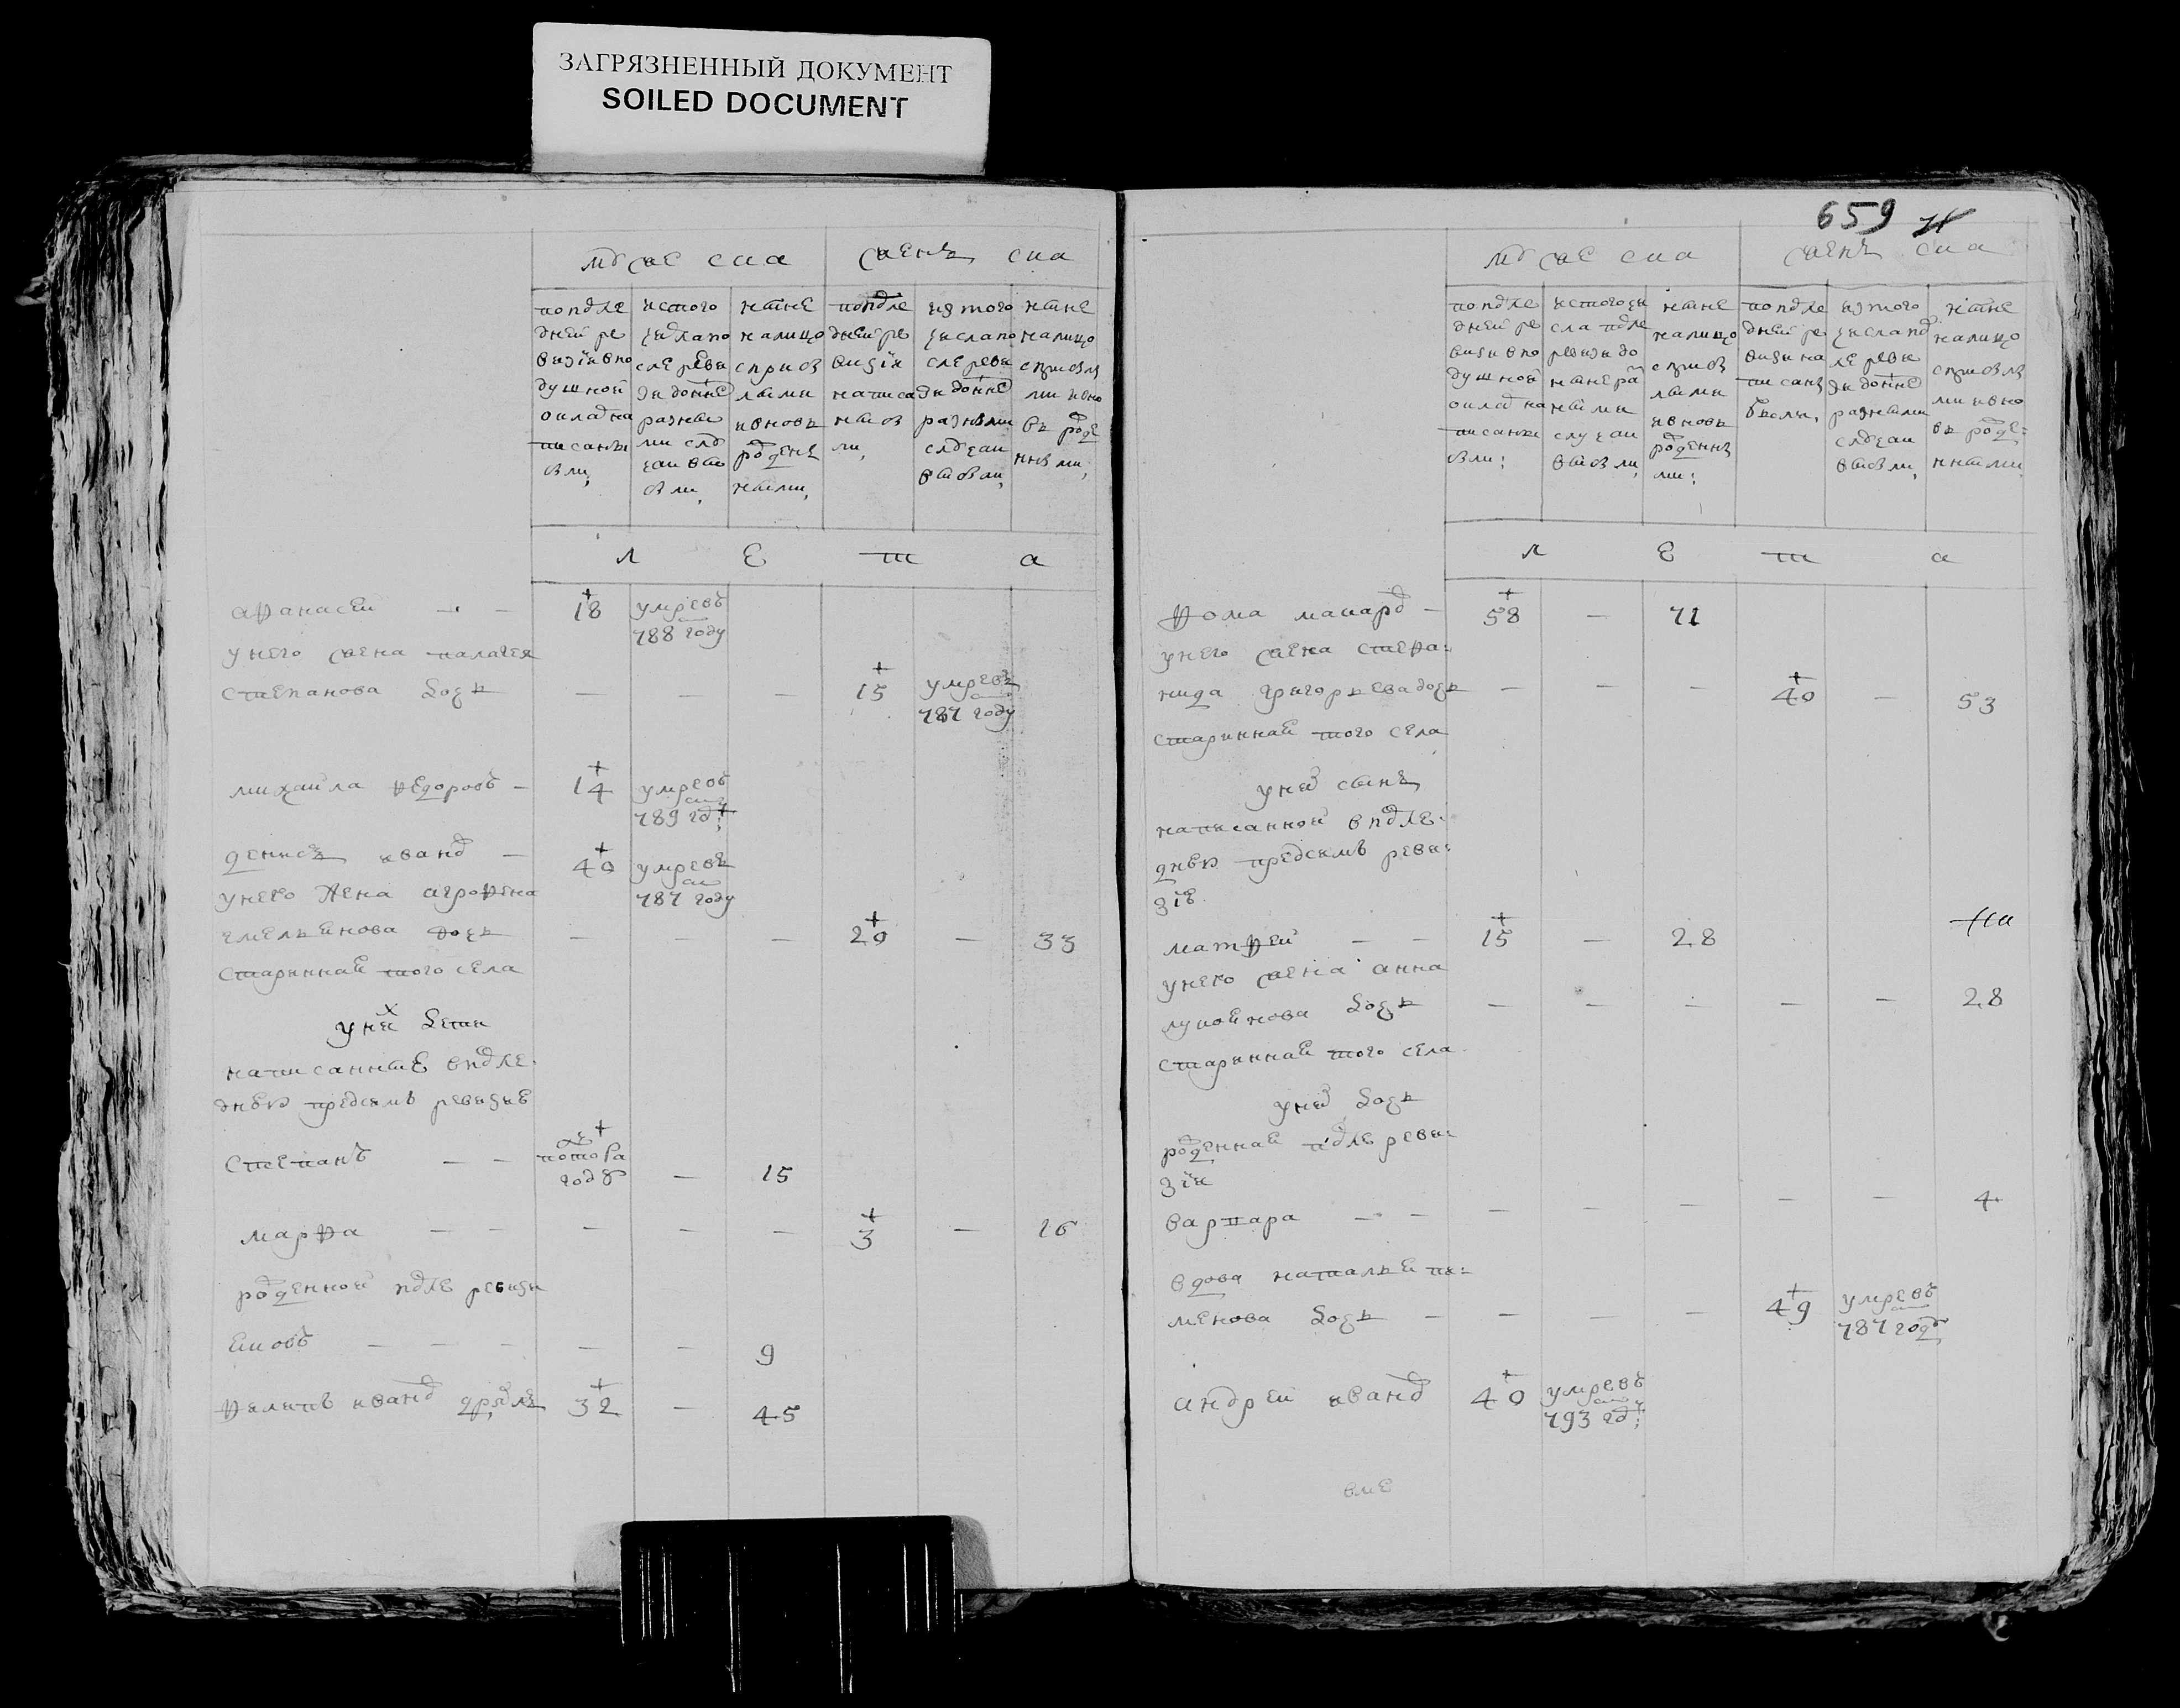 ЗАГРЯЗНЕННЫЙ ДОКУМЕНТ
SOILED DOCUMENT
мускЕ
женска
по пдле
дней ре
визiи в по
душной
оклад на
писаны
были,
ис того
числа по
сле реви
зи до нне
разны
ми слу
чаи вы
были,
ныне
налицо
с прибы
лыми
и вновь
роденъ
ными,
по пдле
дней ре
визiи
написа
ны бы
ли,
из того
числа по
сле реви
зи до нне
разными
случаи
выбыли,
ныне
налицо
с прибылы
ми и вно
вь роде
нными,
л Е т а
афанасей — — 18 умре въ
788 году
у него жена палагея
степанова дочь — — — 15 умре въ
787 году
михайла федоровъ — 14 умре въ
789 году
денисъ иванов — 40 умре въ
787 году
у него жена агрофена
емельянова дочь — — — 20 — 33
стариннаЕ того села
у них дети
написанныЕ в пдле
днею пред симъ ревизиЕ
степанъ — — полтора
году — 15
марфа — — — — — 3 — 16
роденной пдле ревизи
яковъ — — — — — 9
филипъ иванов 32 — 45
659
мускЕ
женска
по пдле
дней ре
визи в по
душной
оклад на
писаны
были;
ис того чи
сла пдле
ревизи до
ныне раз
ными
случаи
выбыли,
ныне
налицо
с прибы
лыми
и вновь
роденны
ми;
по пдле
дней ре
визи на
писаны
были,
из того
числа пос
ле реви
зи до нне
разными
случаи
выбыли,
ныне
налицо
с прибылы
ми и вно
вь роде:
нными
л Е т а
фома макаров — 58 — 71
у него жена стефа:
нида григорьева дочь — — — 40 — 53
стариннаЕ того села
у нев сынъ
написанной в пдле
днею пред симъ реви:
зiЕ
матфей — — 15 — 28
у него жена анна
лукоянова дочь — — — — — 28
стариннаЕ того села
у нев дочь
роденнаЕ пдле реви:
зiи
варвара — — — — — — — 4
вдова наталья пи:
менова дочь — — — — 49 умре въ
787 году
андрей иванов 40 умре въ
793 году
вме